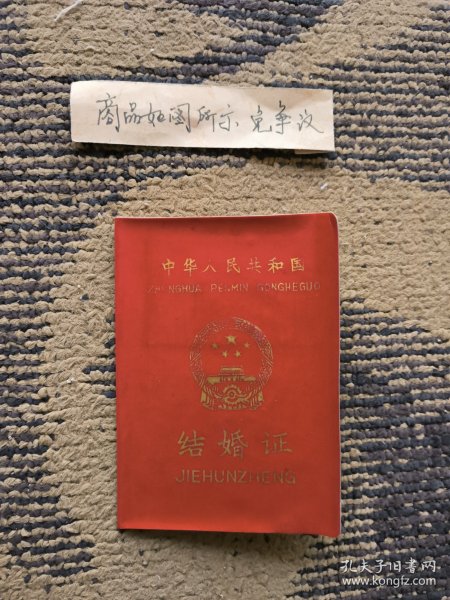 商品如图所示、免争议
中华人民共和国
ZHONGHUA RENMIN GONGHEGUO
结婚证
JIEHUNZHENG
孔夫子旧书网
www.kongfz.com